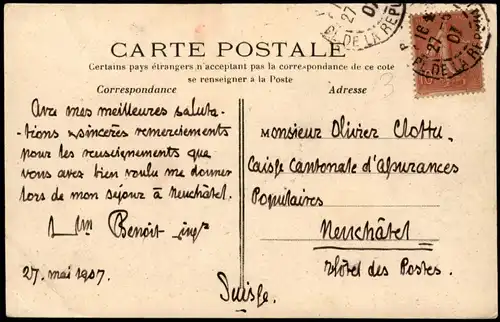 CARTE POSTALE
Certains pays étrangers n'acceptant pas la correspondance de ce coté
se renseigner à la Poste
Correspondance
Adresse
Avec mes meilleures saluta-
-tions & sincères remerciements
pour les renseignements que
vous avez bien voulu me donner
lors de mon séjour à Neuchâtel.
Benoit ingr
27. mai 1907.
Monsieur Olivier Clottu,
Caisse Cantonale d'Assurances
Populaires
Neuchâtel
Hôtel des Postes.
Suisse.
PL. DE LA REPU
27
07
16
27
07
PL. DE LA REPU
3